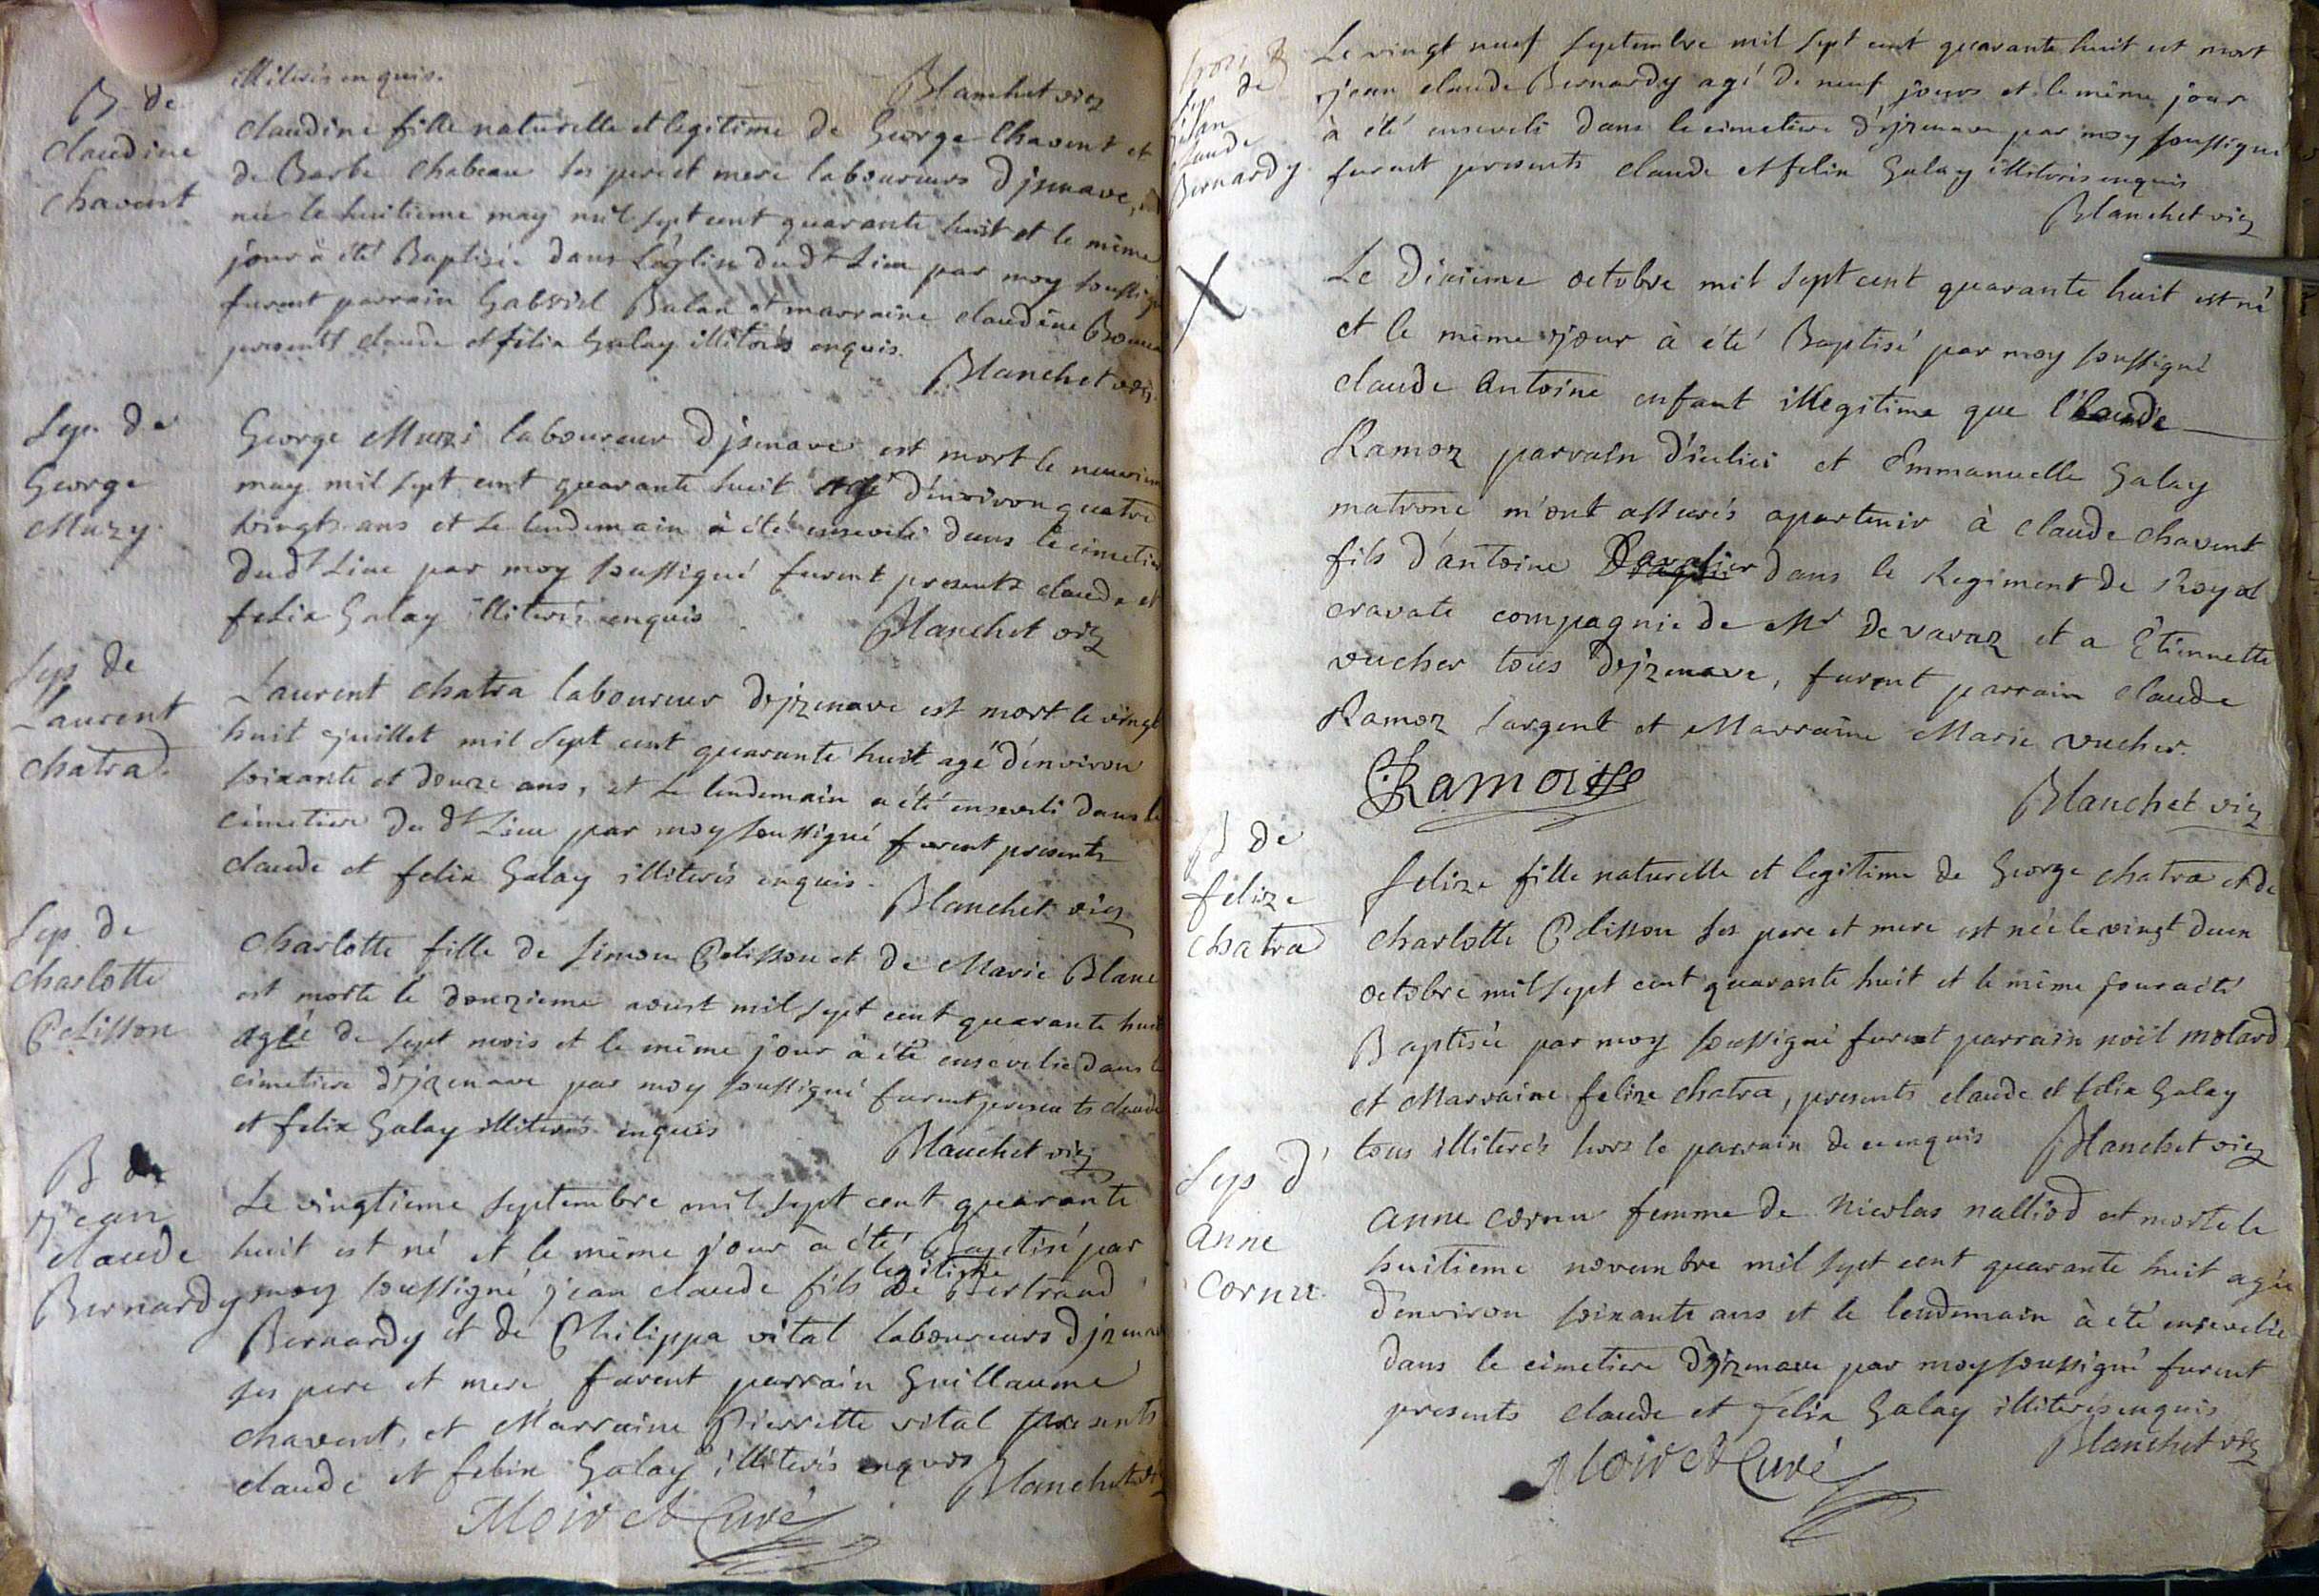 illiterés enquis.
Blanchet vic
B de
claudine
chavent
claudine fille naturelle et legitime de George Chavent et
de Barbe Chabeau ses pere et mere laboureurs Djzenave,
née le huitieme may mil sept cent quarante huit et le même
jour à été Baptisée dans L'églize dud.t Lieu par moy soussigné
furent parrain Gabriel Balan et marraine claudine
presents claude et felix Galay illiterés enquis.
Blanchet vic
Sep. de
George
Muzy.
George Muzi laboureur Djzenave est mort le neuvieme
may mil sept cent quarante huit agé d'environ quatre
vingts ans et le lendemain à été enseveli dans le cimetiere
dud.t Lieu par moy soussigné furent presents claude et
felix Galay illiterés enquis
Blanchet vic
Sep de
Laurent
chatra.
Laurent chatra laboureur Dejzenave est mort le vingt
huit juillet mil sept cent quarante huit agé d'environ
soixante et douze ans, et le lendemain a été enseveli dans le
cimetiere du d.t Lieu par moy soussigné furent presents
claude et felix Galay illiterés enquis.
Blanchet vic
Sep. de
charlotte
Pelisson
Charlotte fille de simon Pelisson et de Marie Blanc
est morte le douzieme aoust mil sept cent quarante huit
agée de sept mois et le même jour à été ensevelie dans le
cimetiere dejzenave par moy soussigné furent presents claude
et felix Galay illiterés enquis
Blanchet vic
B de
jean
claude
Bernardy
Le vingtieme septembre mil sept cent quarante
huit est né et le même jour à été Baptisé par
legitime
moy soussigné jean claude fils de Bertrand
Bernardy et de Philippa vital laboureurs Djzenave
ses pere et mere, furent parrain Guillaume
chavent, et Marraine Pierrette vital presents
claude et felix Galay illiterés enquis
Blanchet vic
Moiret Curé
Sep de
jean
claude
Bernardy.
Le vingt neuf septembre mil sept cent quarante huit est mort
jean claude Bernardy agé de neuf jours et le même jour
à été enseveli dans le cimetiere d'ejzenave par moy soussigné
furent presents claude et felix Galay illiterés enquis
Blanchet vic
X
Le Dixieme octobre mil sept cent quarante huit est né
et le même jour à été Baptisé par moy soussigné
claude antoine enfant illegitime que claude
Ramoz parrain d'icelui et Emmanuelle Galay
matrone m'ont assurés apartenir à claude chavent
fils d'antoine Cavalier dans le Regiment de Royal
cravate compagnie de Mr De varaz et a Etiennette
vucher tous Dejzenave, furent parrain claude
Ramoz sargent et Marraine Marie vucher.
C. Ramoz
Blanchet vic
B de
felize
chatra
felize fille naturelle et legitime de George chatra et de
charlotte Pelisson ses pere et mere est née le vingt deux
octobre mil sept cent quarante huit et le même jour a été
Baptisée par moy soussigné furent parrain noël molard
et Marraine felize chatra, presents claude et felix Galay
tous illiterés hors le parrain de ce enquis
Blanchet vic
Sep d'
anne
cornu.
anne cornu femme de Nicolas nalliod est morte le
huitieme novembre mil sept cent quarante huit agée
d'environ soixante ans et le lendemain à été ensevelie
dans le cimetiere Dejzenave par moy soussigné furent
presents claude et felix Galay illiterés enquis
Blanchet vic
Moiret Curé